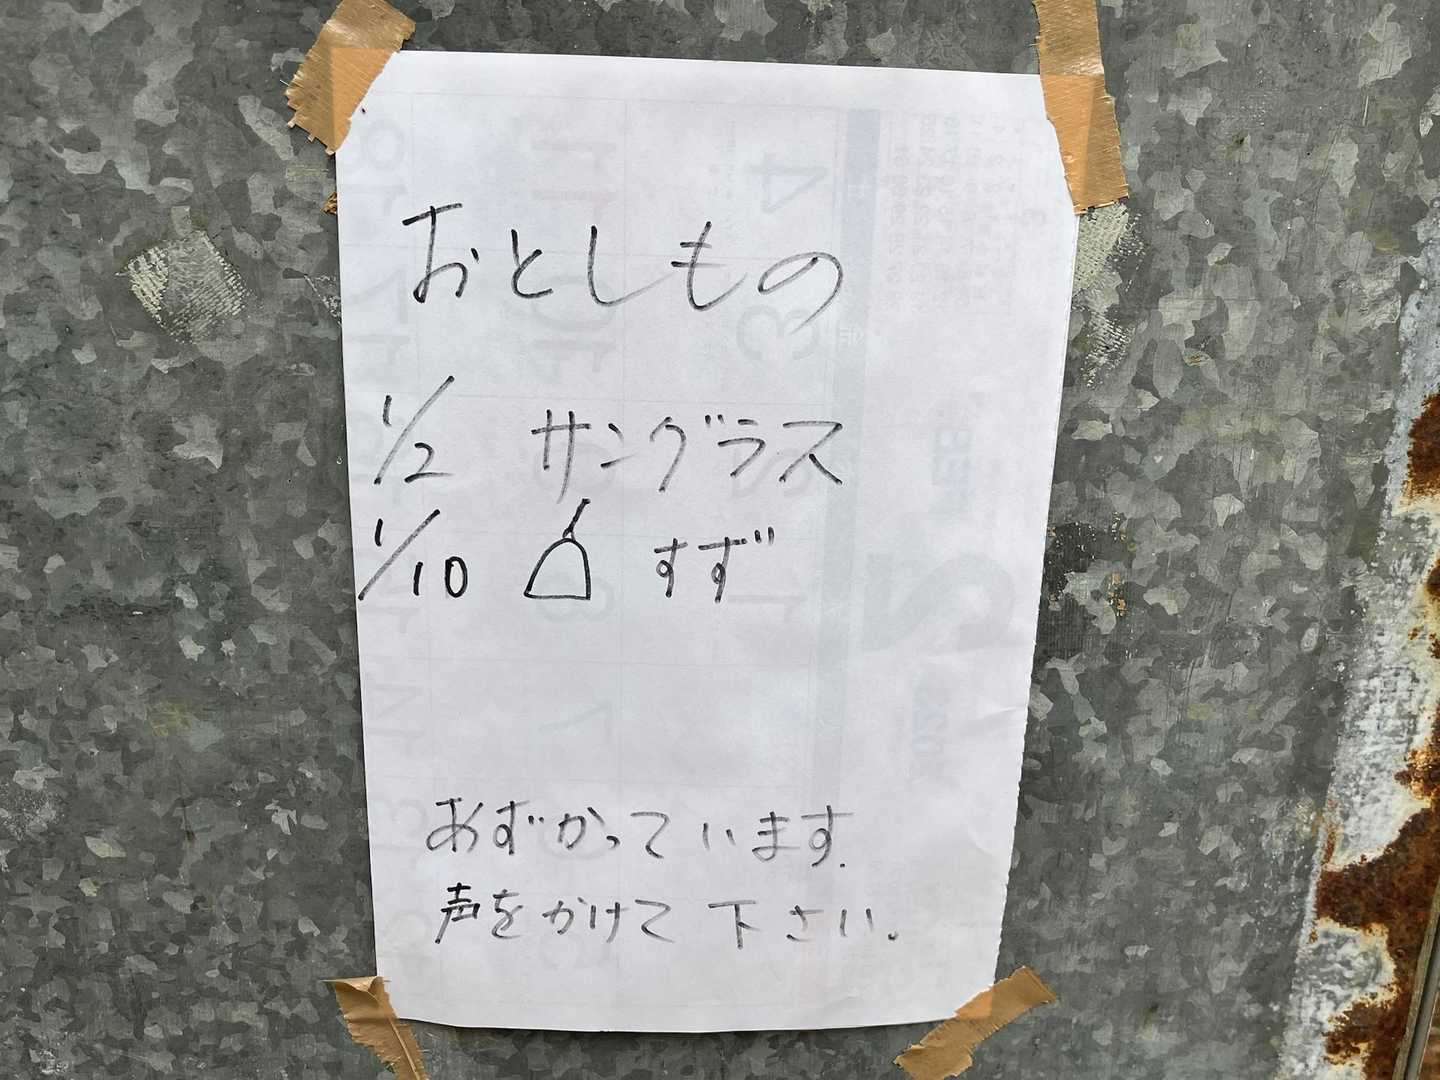 おとしもの
1/2 サングラス
1/10 すず
あずかっています.
声をかけて下さい。